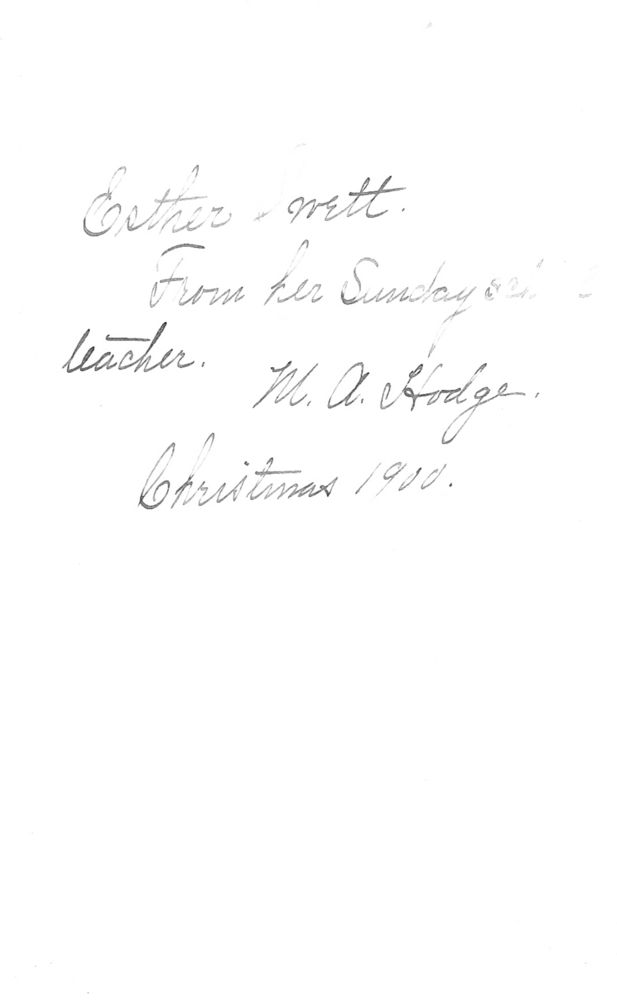 Esther Swett.
From her Sunday
teacher.
M. A. Hodge.
Christmas 1900.